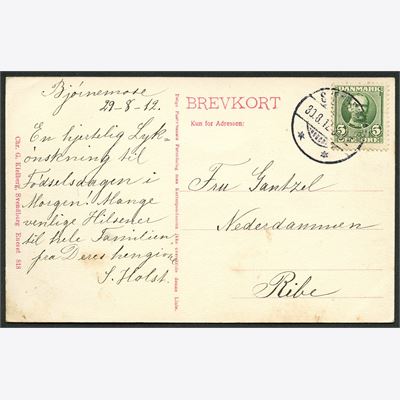 Bjørnemose
29-8-12.
En hjertelig Lyk-
ønskning til
Fødselsdagen i
Morgen! Mange
venlige Hilsener
til hele Familien,
fra Deres hengivne
S. Holst.
Chr. G. Kielberg, Svendborg. Eneret 818
BREVKORT
Kun for Adressen:
DANMARK
5 5
ØRE
30.8.12
Fru Gantzel
Nederdammen
Ribe